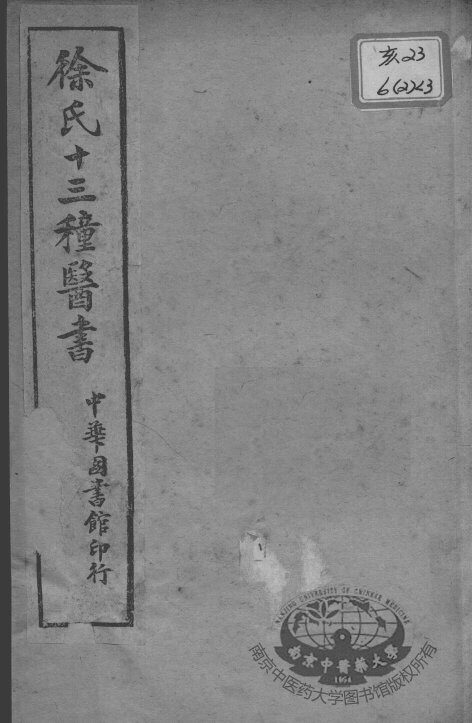 徐氏十三種醫書
中華圖書館印行
亥23
6(22)<3
NANJING UNIVERSITY OF CHINESE MEDICINE
南京中醫藥大學
1954
南京中医药大学图书馆版权所有